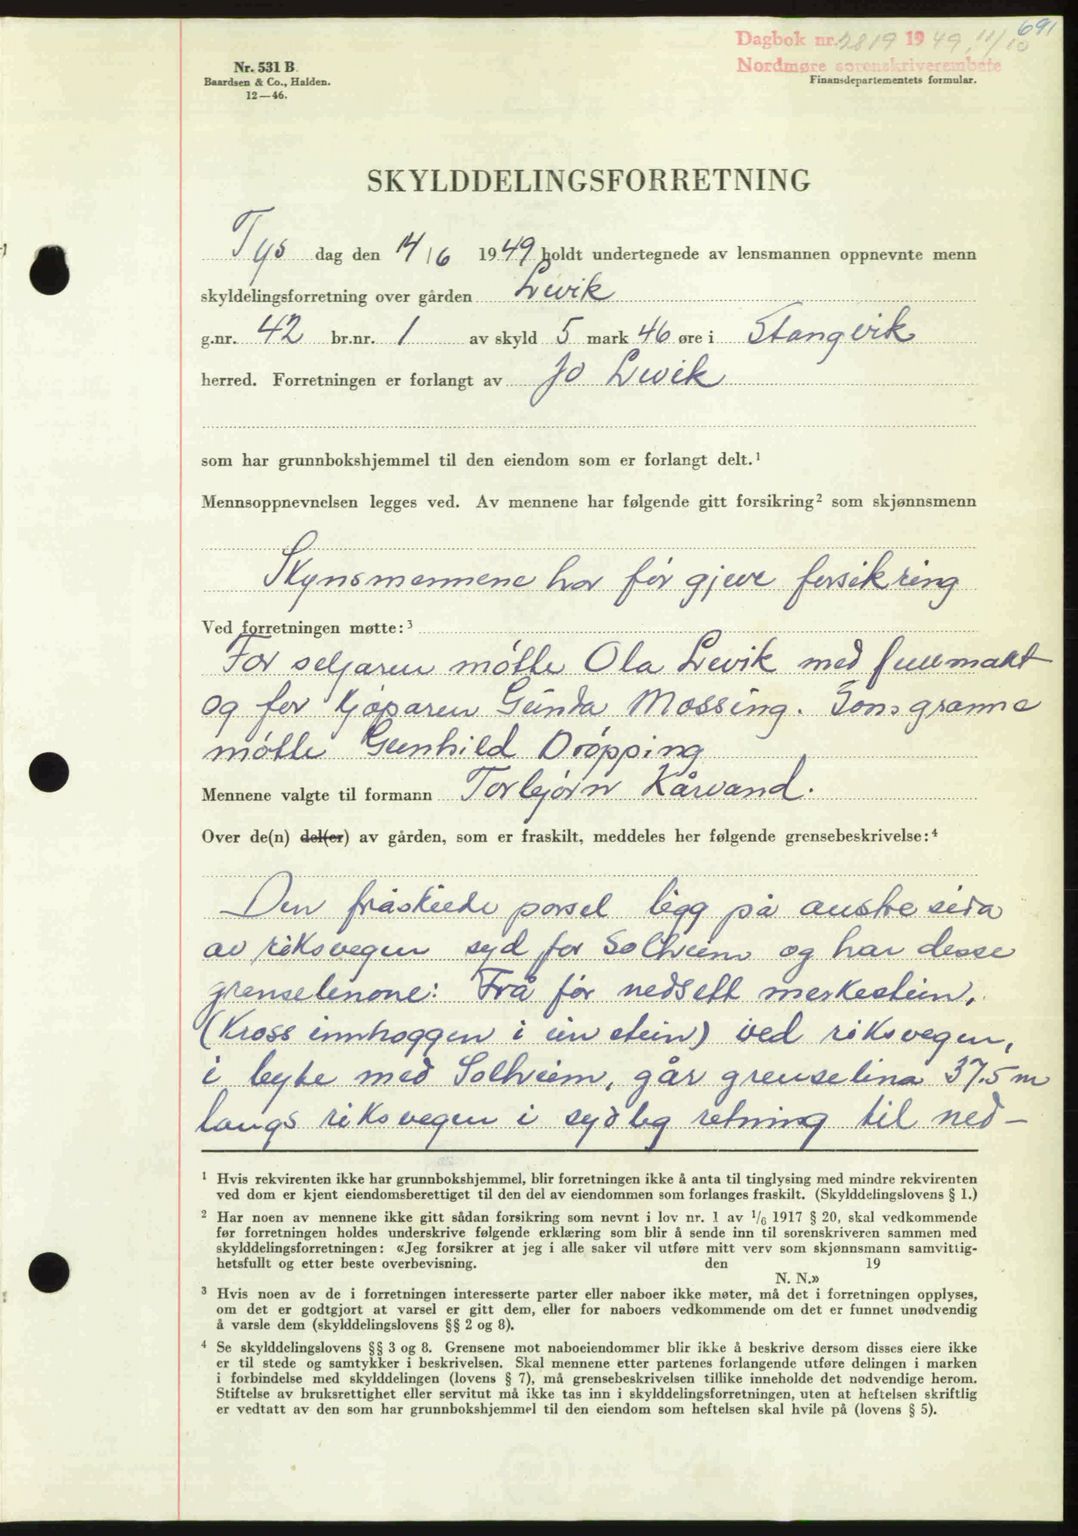 691
Dagbok nr. 2819 1949, 11/10
Nordmøre sorenskriverembete
Nr. 531 B.
Baardsen & Co., Halden.
12—46.
Finansdepartementets formular.
SKYLDDELINGSFORRETNING
Tys dag den 14/6 1949 holdt undertegnede av lensmannen oppnevnte menn
skyldelingsforretning over gården Levik
g.nr. 42 br.nr. 1 av skyld 5 mark 46 øre i Stangvik
herred. Forretningen er forlangt av Jo Levik
som har grunnbokshjemmel til den eiendom som er forlangt delt.¹
Mennsoppnevnelsen legges ved. Av mennene har følgende gitt forsikring² som skjønnsmenn
Skynsmennene har før gjeve forsikring
Ved forretningen møtte:³
For seljaren møtte Ola Levik med fullmakt
og for kjøparen Gunda Mossing. Som granne
møtte Gunhild Drøpping
Mennene valgte til formann Torbjørn Kårvand.
Over de(n) del(er) av gården, som er fraskilt, meddeles her følgende grensebeskrivelse:⁴
Den fråskilde parsel ligg på austre sida
av riksvegen syd for Solheim og har desse
grenselinone: Frå før nedsett merkestein,
(Kross innhoggen i ein stein) ved riksvegen,
i byte med Solheim, går grenselina 37.5 m
langs riksvegen i sydleg retning til ned—
¹ Hvis rekvirenten ikke har grunnbokshjemmel, blir forretningen ikke å anta til tinglysing med mindre rekvirenten
ved dom er kjent eiendomsberettiget til den del av eiendommen som forlanges fraskilt. (Skylddelingslovens § 1.)
² Har noen av mennene ikke gitt sådan forsikring som nevnt i lov nr. 1 av 1/6 1917 § 20, skal vedkommende
før forretningen holdes underskrive følgende erklæring som blir å sende inn til sorenskriveren sammen med
skylddelingsforretningen: «Jeg forsikrer at jeg i alle saker vil utføre mitt verv som skjønnsmann samvittig-
hetsfullt og etter beste overbevisning. den 19
N. N.»
³ Hvis noen av de i forretningen interesserte parter eller naboer ikke møter, må det i forretningen opplyses,
om det er godtgjort at varsel er gitt dem, eller for naboers vedkommende om det er funnet unødvendig
å varsle dem (skylddelingslovens §§ 2 og 8).
⁴ Se skylddelingslovens §§ 3 og 8. Grensene mot naboeiendommer blir ikke å beskrive dersom disses eiere ikke
er til stede og samtykker i beskrivelsen. Skal mennene etter partenes forlangende utføre delingen i marken
i forbindelse med skylddelingen (lovens § 7), må grensebeskrivelsen tillike inneholde det nødvendige herom.
Stiftelse av bruksrettighet eller servitut må ikke tas inn i skylddelingsforretningen, uten at heftelsen skriftlig
er vedtatt av den som har grunnbokshjemmel til den eiendom som heftelsen skal hvile på (lovens § 5).